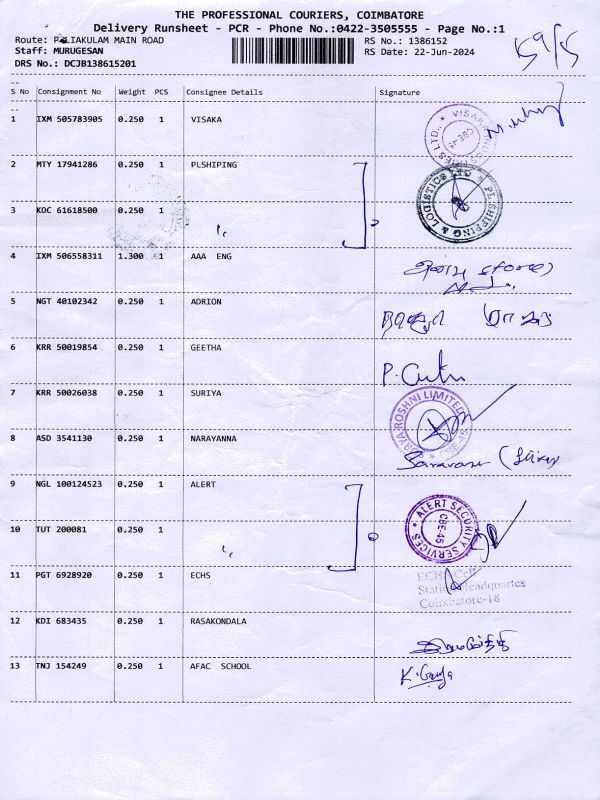 THE PROFESSIONAL COURIERS, COIMBATORE
Delivery Runsheet - PCR - Phone No.:0422-3505555 - Page No.:1
Route: MAIN ROAD RS No.: 1386152
Staff: MURUGESAN RS Date: 22-Jun-2024
DRS No.: DCJB138615201
S No Consignment No Weight PCS Consignee Details Signature
1 IXM 505783905 0.250 1 VISAKA
2 MTY 17941286 0.250 1 PLSHIPING
PL SHIPPING & LOGISTICS LTD
3 KOC 61618500 0.250 1
4 IXM 506558311 1.300 1 AAA ENG
5 NGT 40102342 0.250 1 ADRION
6 KRR 50019854 0.250 1 GEETHA
7 KRR 50026038 0.250 1 SURIYA
ROSHNI LIMITED
8 ASD 3541130 0.250 1 NARAYANNA
9 NGL 100124523 0.250 1 ALERT
ALERT SECURITY SERVICES
CBE-45
10 TUT 200081 0.250 1
11 PGT 6928920 0.250 1 ECHS
ECHS Cell
Station Headquartes
Coimbatore-18
12 KDI 683435 0.250 1 RASAKONDALA
13 TNJ 154249 0.250 1 AFAC SCHOOL